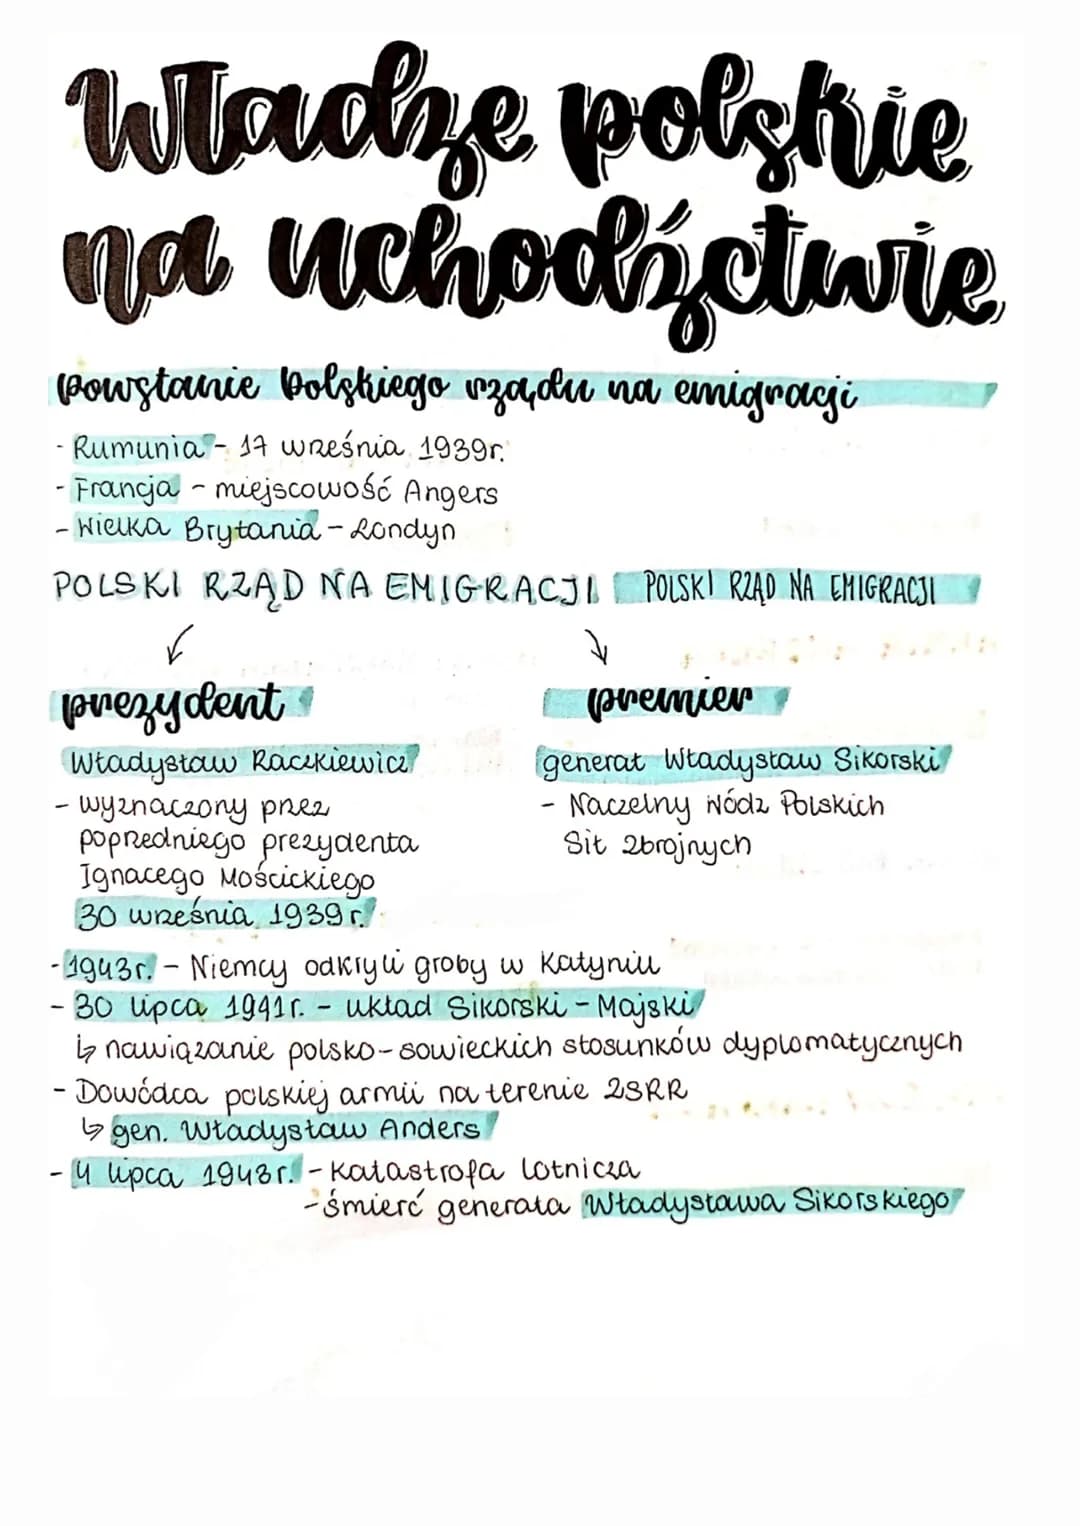 Władze polskie
na uchodźctwie
powstanie polskiego rządu na emigracji
- Rumunia - 17 września 1939r.
- Francja - miejscowość Angers
- Wielka Brytania - Londyn
POLSKI RZĄD NA EMIGRACJI POLSKI RZĄD NA EMIGRACJI
prezydent premier
Władysław Raczkiewicz generał Władysław Sikorski
- wyznaczony przez - Naczelny Wódz Polskich
poprzedniego prezydenta Sił Zbrojnych
Ignacego Mościckiego
30 września 1939 r.
- 1943r. - Niemcy odkryli groby w Katyniu
- 30 lipca 1941r. - układ Sikorski - Majski
↳ nawiązanie polsko-sowieckich stosunków dyplomatycznych
- Dowódca polskiej armii na terenie ZSRR
↳ gen. Władysław Anders
- 4 lipca 1943r. - Katastrofa lotnicza
- śmierć generała Władysława Sikorskiego